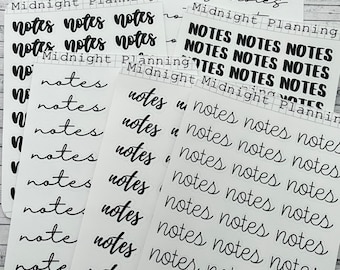 Midnight Planning
notes notes notes
notes notes notes
notes
Midnight Planning
NOTES NOTES NOTES
NOTES NOTES NOTES
NOTES NOTES NOTES
NOTES
notes
notes
notes
notes
notes
notes
note
Midnight
notes
notes
notes
notes
notes
Midnight Planning
notes notes notes
notes notes notes
notes notes notes
notes notes notes
notes notes notes
notes notes notes
notes notes notes